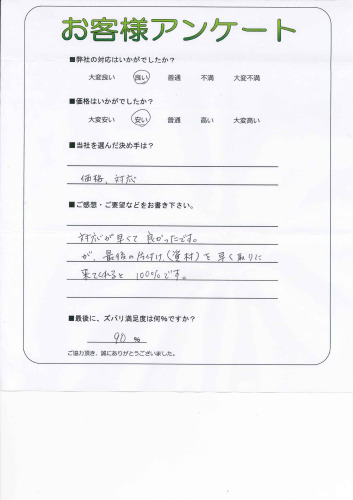 お客様アンケート
■弊社の対応はいかがでしたか?
大変良い 良い 普通 不満 大変不満
■価格はいかがでしたか?
大変安い 安い 普通 高い 大変高い
■当社を選んだ決め手は?
価格、対応
■ご感想・ご要望などをお書き下さい。
対応が早くて良かったです。
が、最後の片付け(資材)を早く取りに
来てくれると100%です。
■最後に、ズバリ満足度は何%ですか?
90 %
ご協力頂き、誠にありがとうございました。